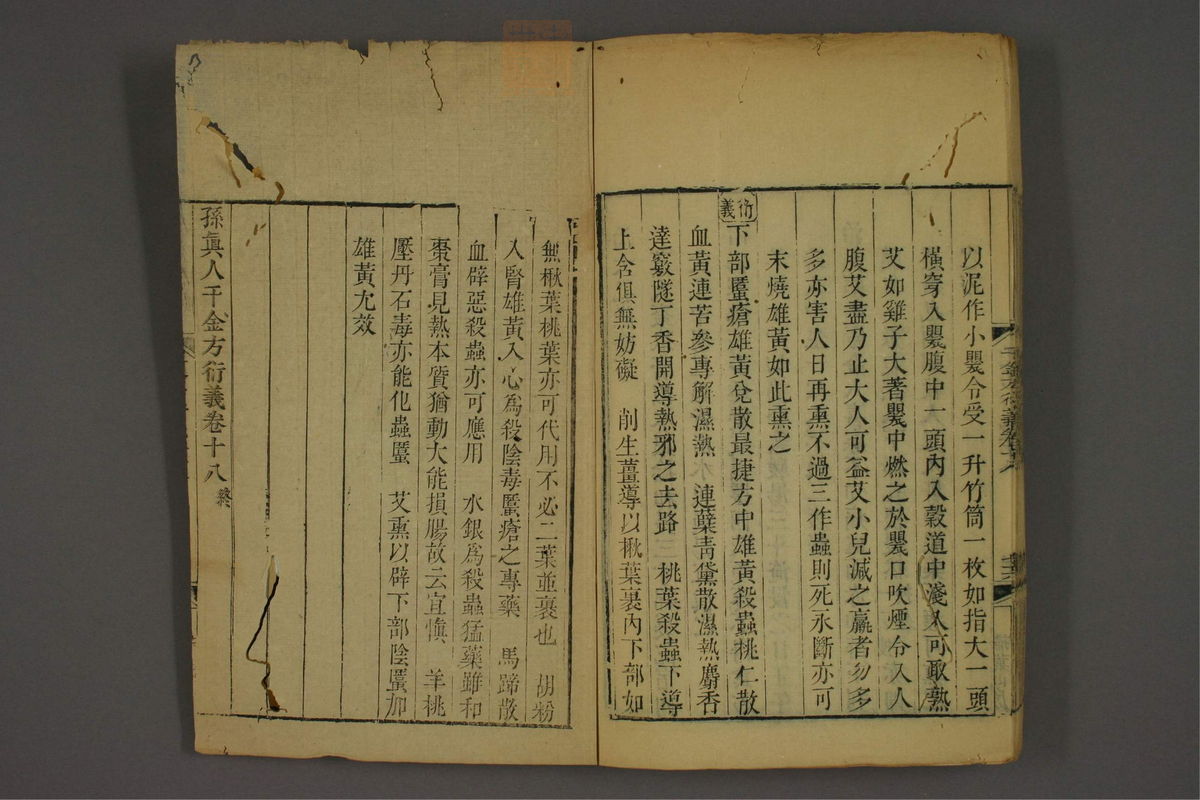 以泥作小罌令受一升竹筒一枚如指大一頭
橫穿入罌腹中一頭內入穀道中淺入可取熟
艾如雞子大著罌中燃之於罌口吹煙令入人
腹艾盡乃止大人可益艾小兒減之羸者勿多
多亦害人日再熏不過三作蟲則死永斷亦可
末燒雄黃如此熏之
衍義
下部䘌瘡雄黃兌散最捷方中雄黃殺蟲桃仁散
血黃連苦參專解濕熱 連蘗青黛散濕熱麝香
達竅隧丁香開導熱邪之去路 桃葉殺蟲下導
上含俱無妨礙 削生薑導以楸葉裹內下部如
無楸葉桃葉亦可代用不必二葉並裹也 胡粉
入腎雄黃入心為殺陰毒䘌瘡之專藥 馬蹄散
血辟惡殺蟲亦可應用 水銀為殺蟲猛藥雖和
棗膏見熱本質猶動大能損腸故云宜慎 羊桃
壓丹石毒亦能化蟲䘌 艾熏以辟下部陰䘌加
雄黃尤效
孫真人千金方衍義卷十八 終